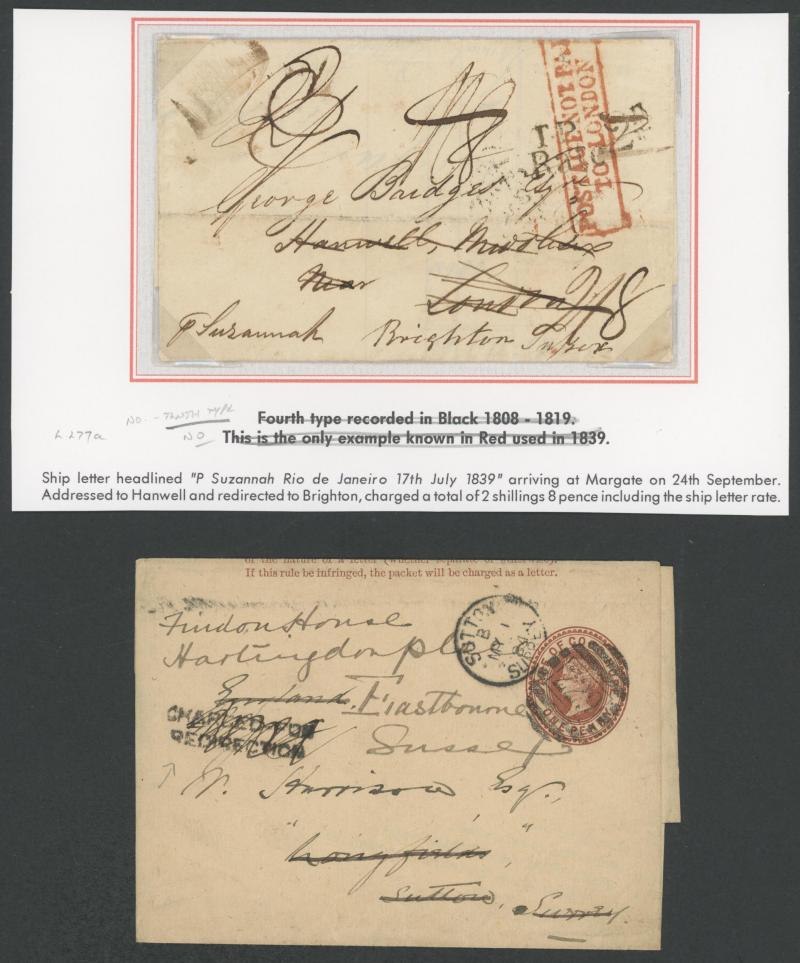 POSTAGE NOT PA
TO LONDON
George Bridges Esqr
Hanwell, Middlesex
Near London
2/8
p Suzannah Brighton Sussex
NO - TENTH TYPE
Fourth type recorded in Black 1808 - 1819.
L 277a
NO
This is the only example known in Red used in 1839.
Ship letter headlined "P Suzannah Rio de Janeiro 17th July 1839" arriving at Margate on 24th September.
Addressed to Hanwell and redirected to Brighton, charged a total of 2 shillings 8 pence including the ship letter rate.
of the nature of a letter (whether separate or otherwise).
If this rule be infringed, the packet will be charged as a letter.
Findon House
SUTTON
B
MY 1
84
SURREY
Hartingdon place
England. Eastbourne
CHARGED FOR
REDIRECTION
Sussex
ONE PENNY
W. Harrison Esq.,
"Longfields,"
Sutton, Surrey.